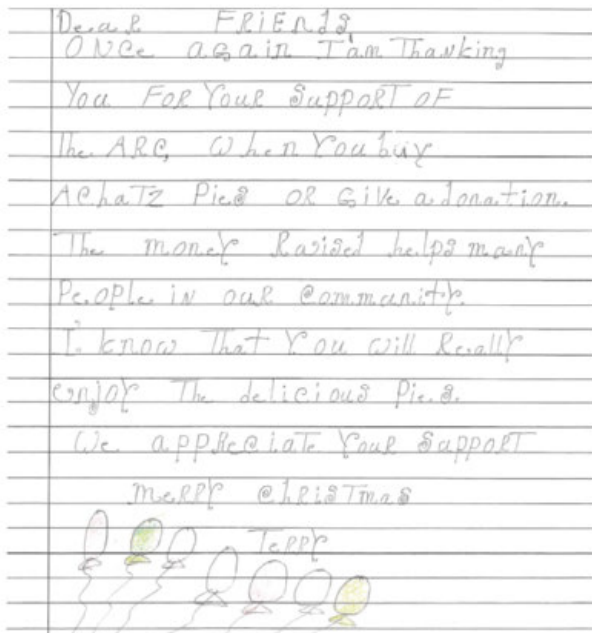 Dear FRiEnds
ONCe again I'am Thanking
You FOR YouR SuppoRT OF
The ARC, When You buy
AChaTZ Pies OR GiVe a donation.
The money Raised helps many
PeOPle in ouR Community.
I know ThaT You will Really
enjoy The delicious Pies.
We appReciate YouR SuppoRT
meRRy ChRisTmas
TeRRy